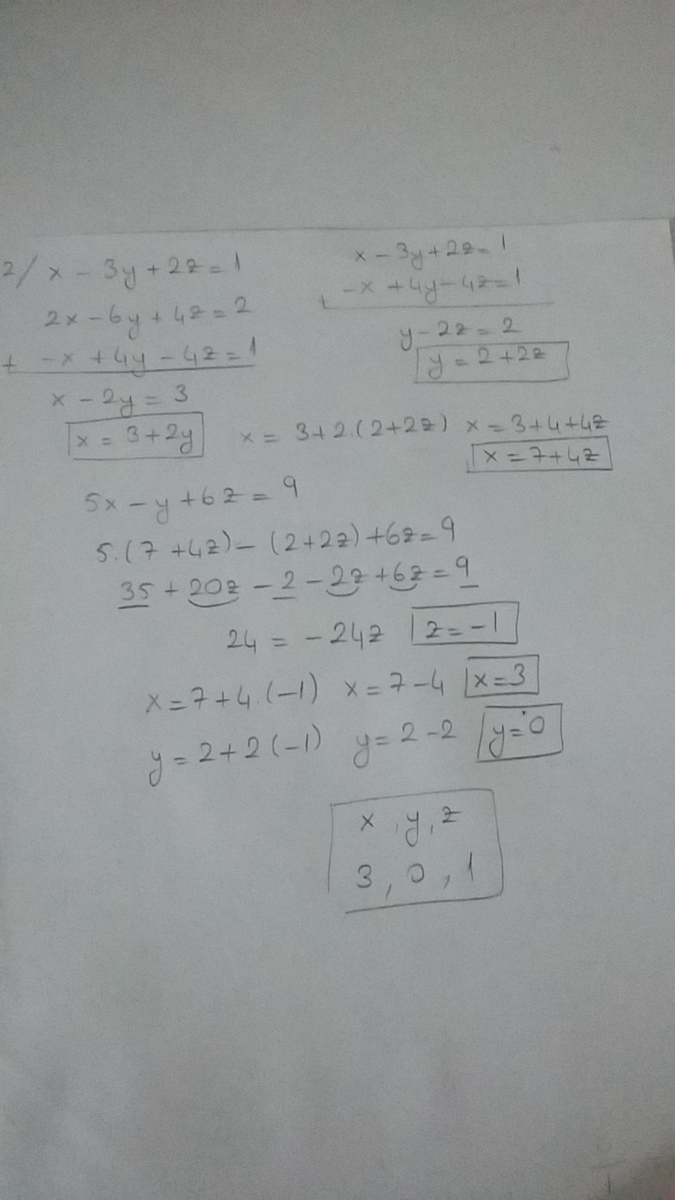 2/ x - 3y + 2z = 1
2x - 6y + 4z = 2
+ -x + 4y - 4z = 1
x - 2y = 3
x = 3 + 2y
x - 3y + 2z = 1
+ -x + 4y - 4z = 1
y - 2z = 2
y = 2 + 2z
x = 3 + 2.(2 + 2z) x = 3 + 4 + 4z
x = 7 + 4z
5x - y + 6z = 9
5.(7 + 4z) - (2 + 2z) + 6z = 9
35 + 20z - 2 - 2z + 6z = 9
24 = -24z z = -1
x = 7 + 4.(-1) x = 7 - 4 x = 3
y = 2 + 2(-1) y = 2 - 2 y = 0
x, y, z
3, 0, 1